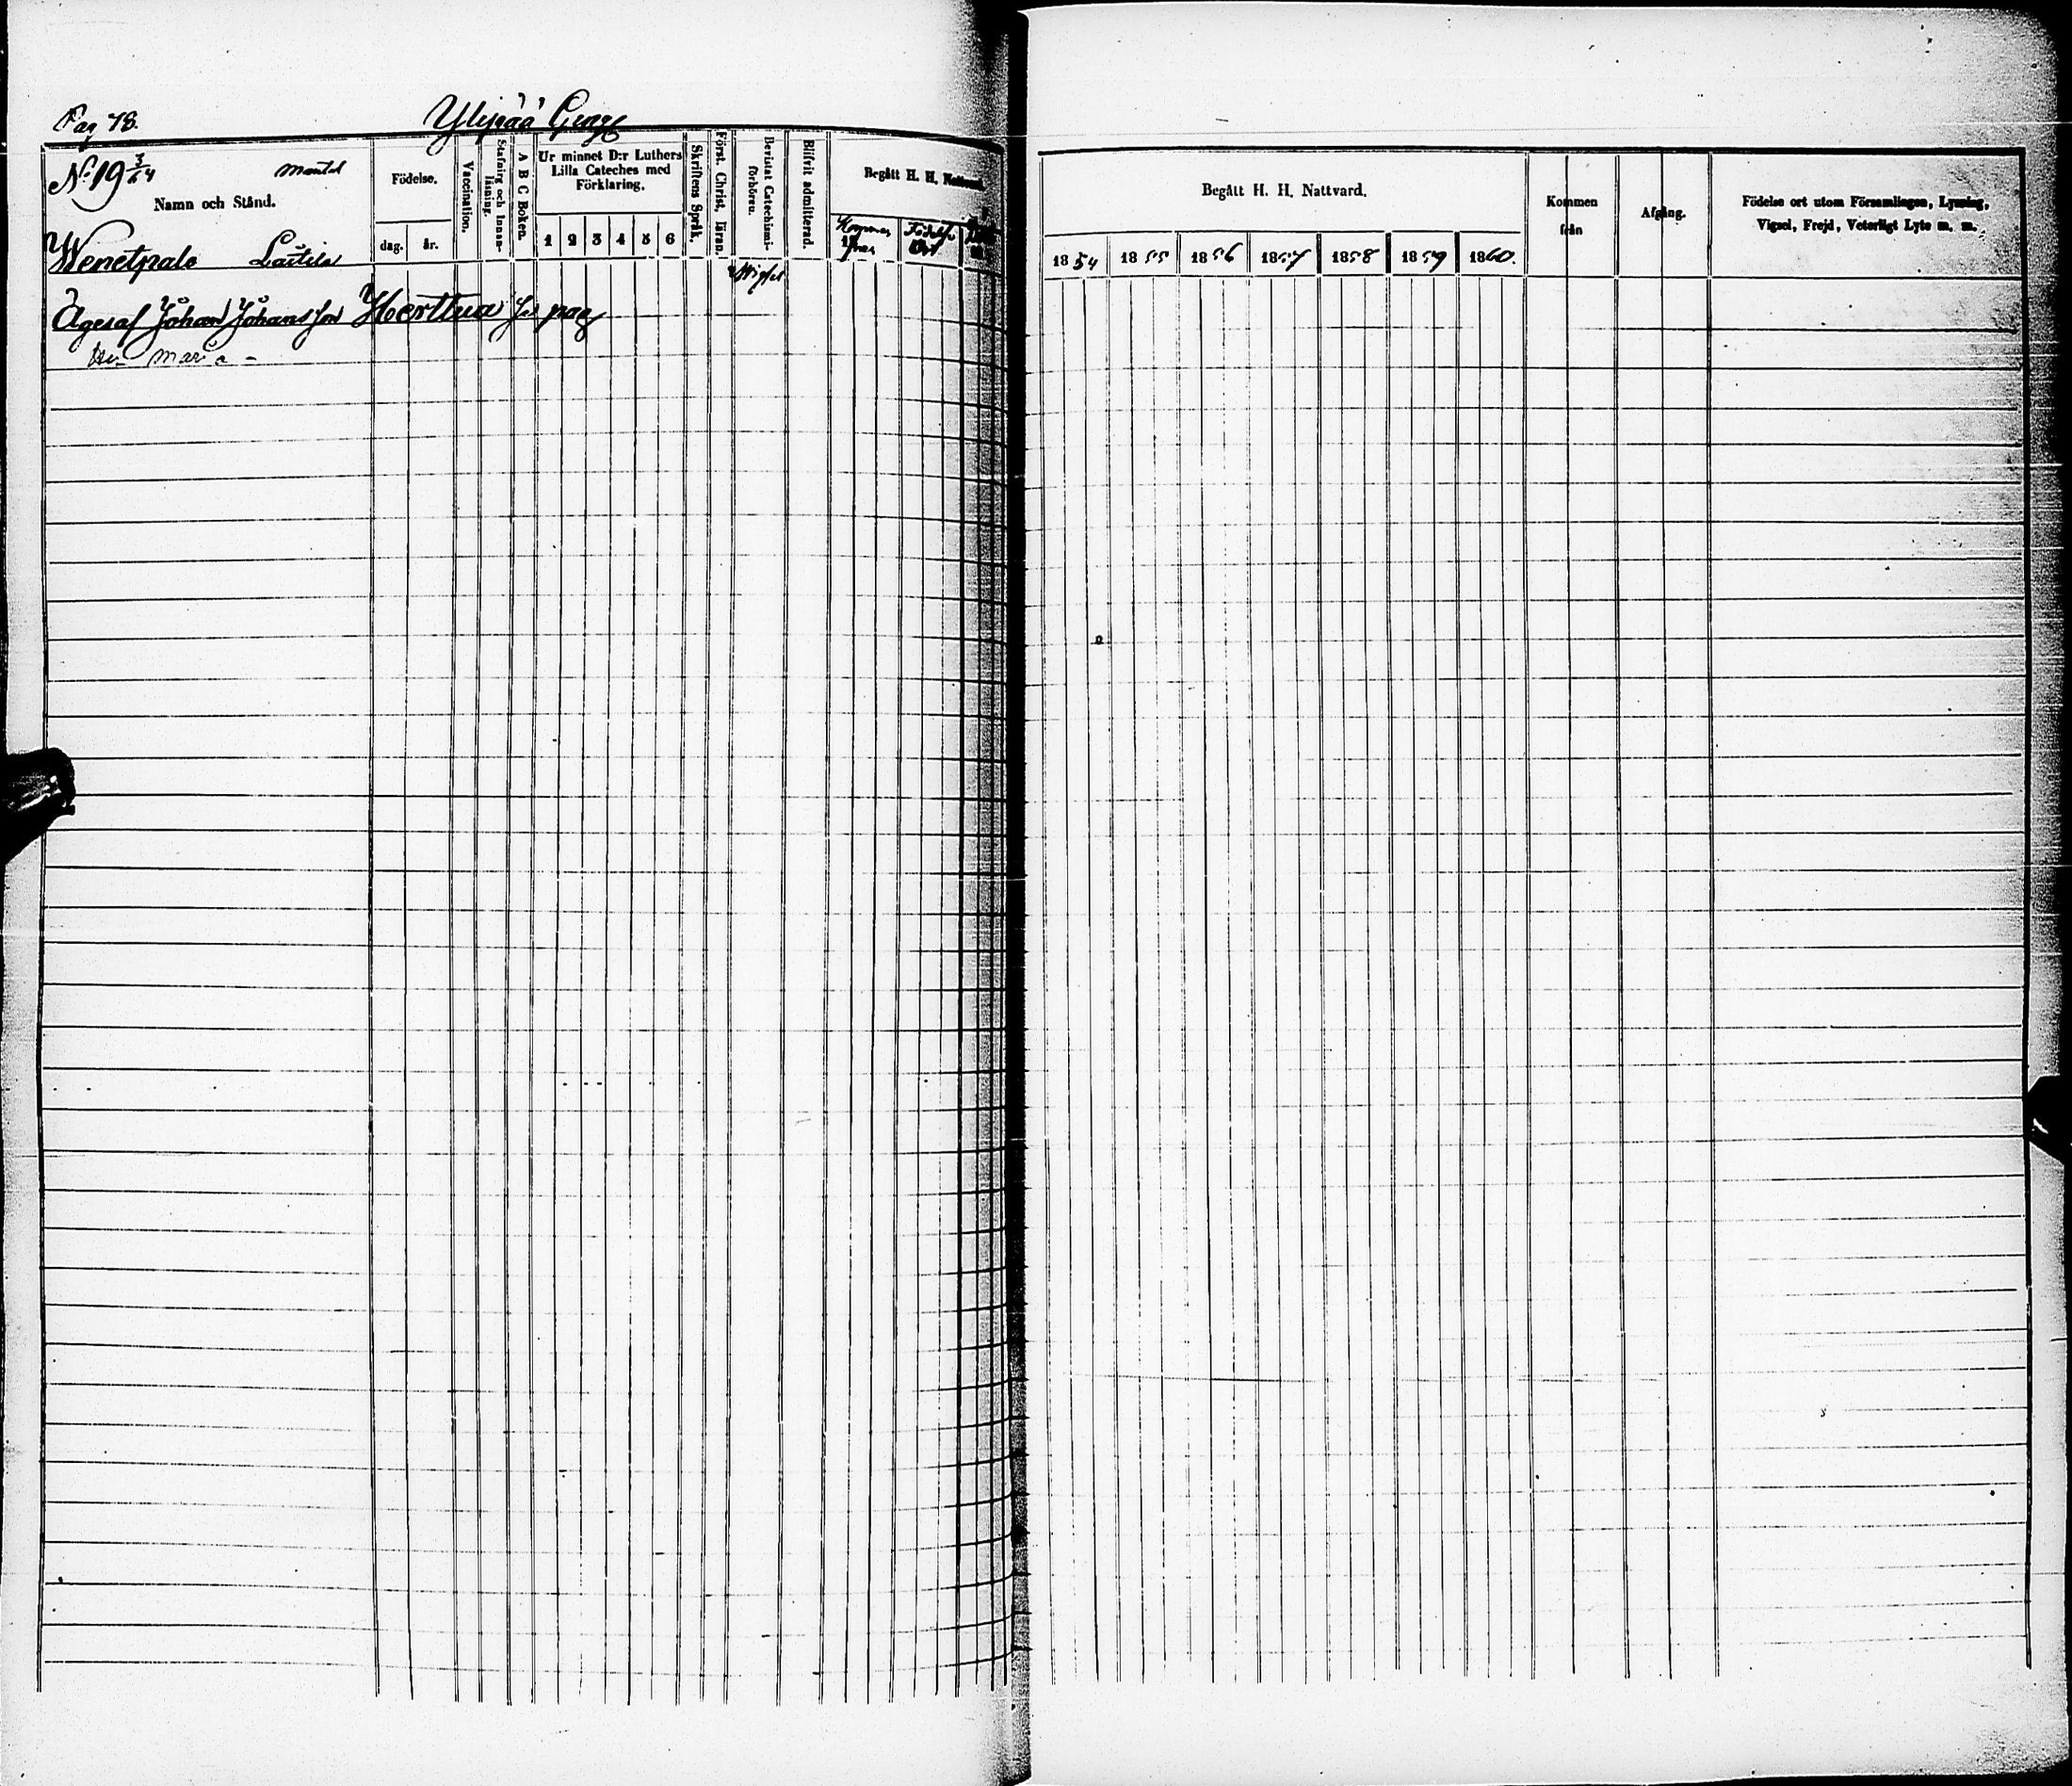 Pag 78.
Ylipää
No 19 3/64 mantal
Namn och Stånd.
Wenetpalo Laitila
Födelse.
dag. år.
Vaccination.
Stafning och Innan-
läsning.
A B C Boken.
Ur minnet D:r Luthers
Lilla Cateches med
Förklaring.
1 2 3 4 5 6
Skriftens Språk.
Först. Christ. läran.
Bevistat Catechismi-
förhören.
Wigsel
Blifvit admitterad.
Begått H. H. Nattvard.
Kommen
från
Födelse
Ort
Äges af Johan Johansson Herttua se pag
Hu Maria
Begått H. H. Nattvard.
1854 1855 1856 1857 1858 1859 1860.
Kommen
från
Afgång.
Födelse ort utom Församlingen, Lysning,
Vigsel, Frejd, Veterligt Lyte m. m.